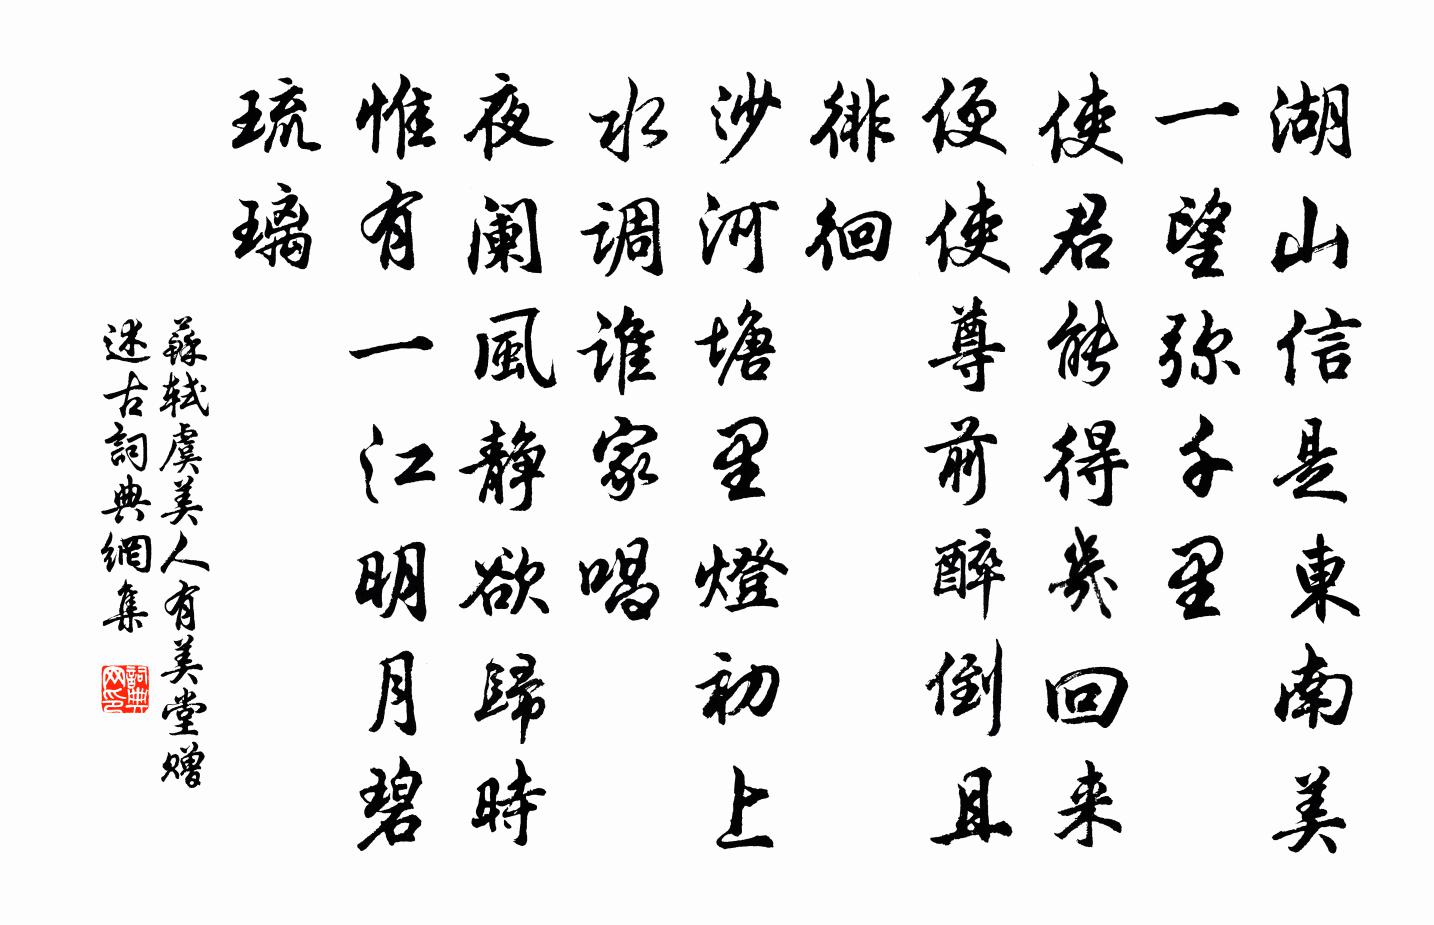 湖山信是東南美
一望弥千里
使君能得幾回来
便使尊前醉倒且
徘徊
沙河塘里燈初上
水调谁家唱
夜阑風静欲歸時
惟有一江明月碧
琉璃
蘇轼虞美人有美堂赠
述古詞典網集
詞典网印